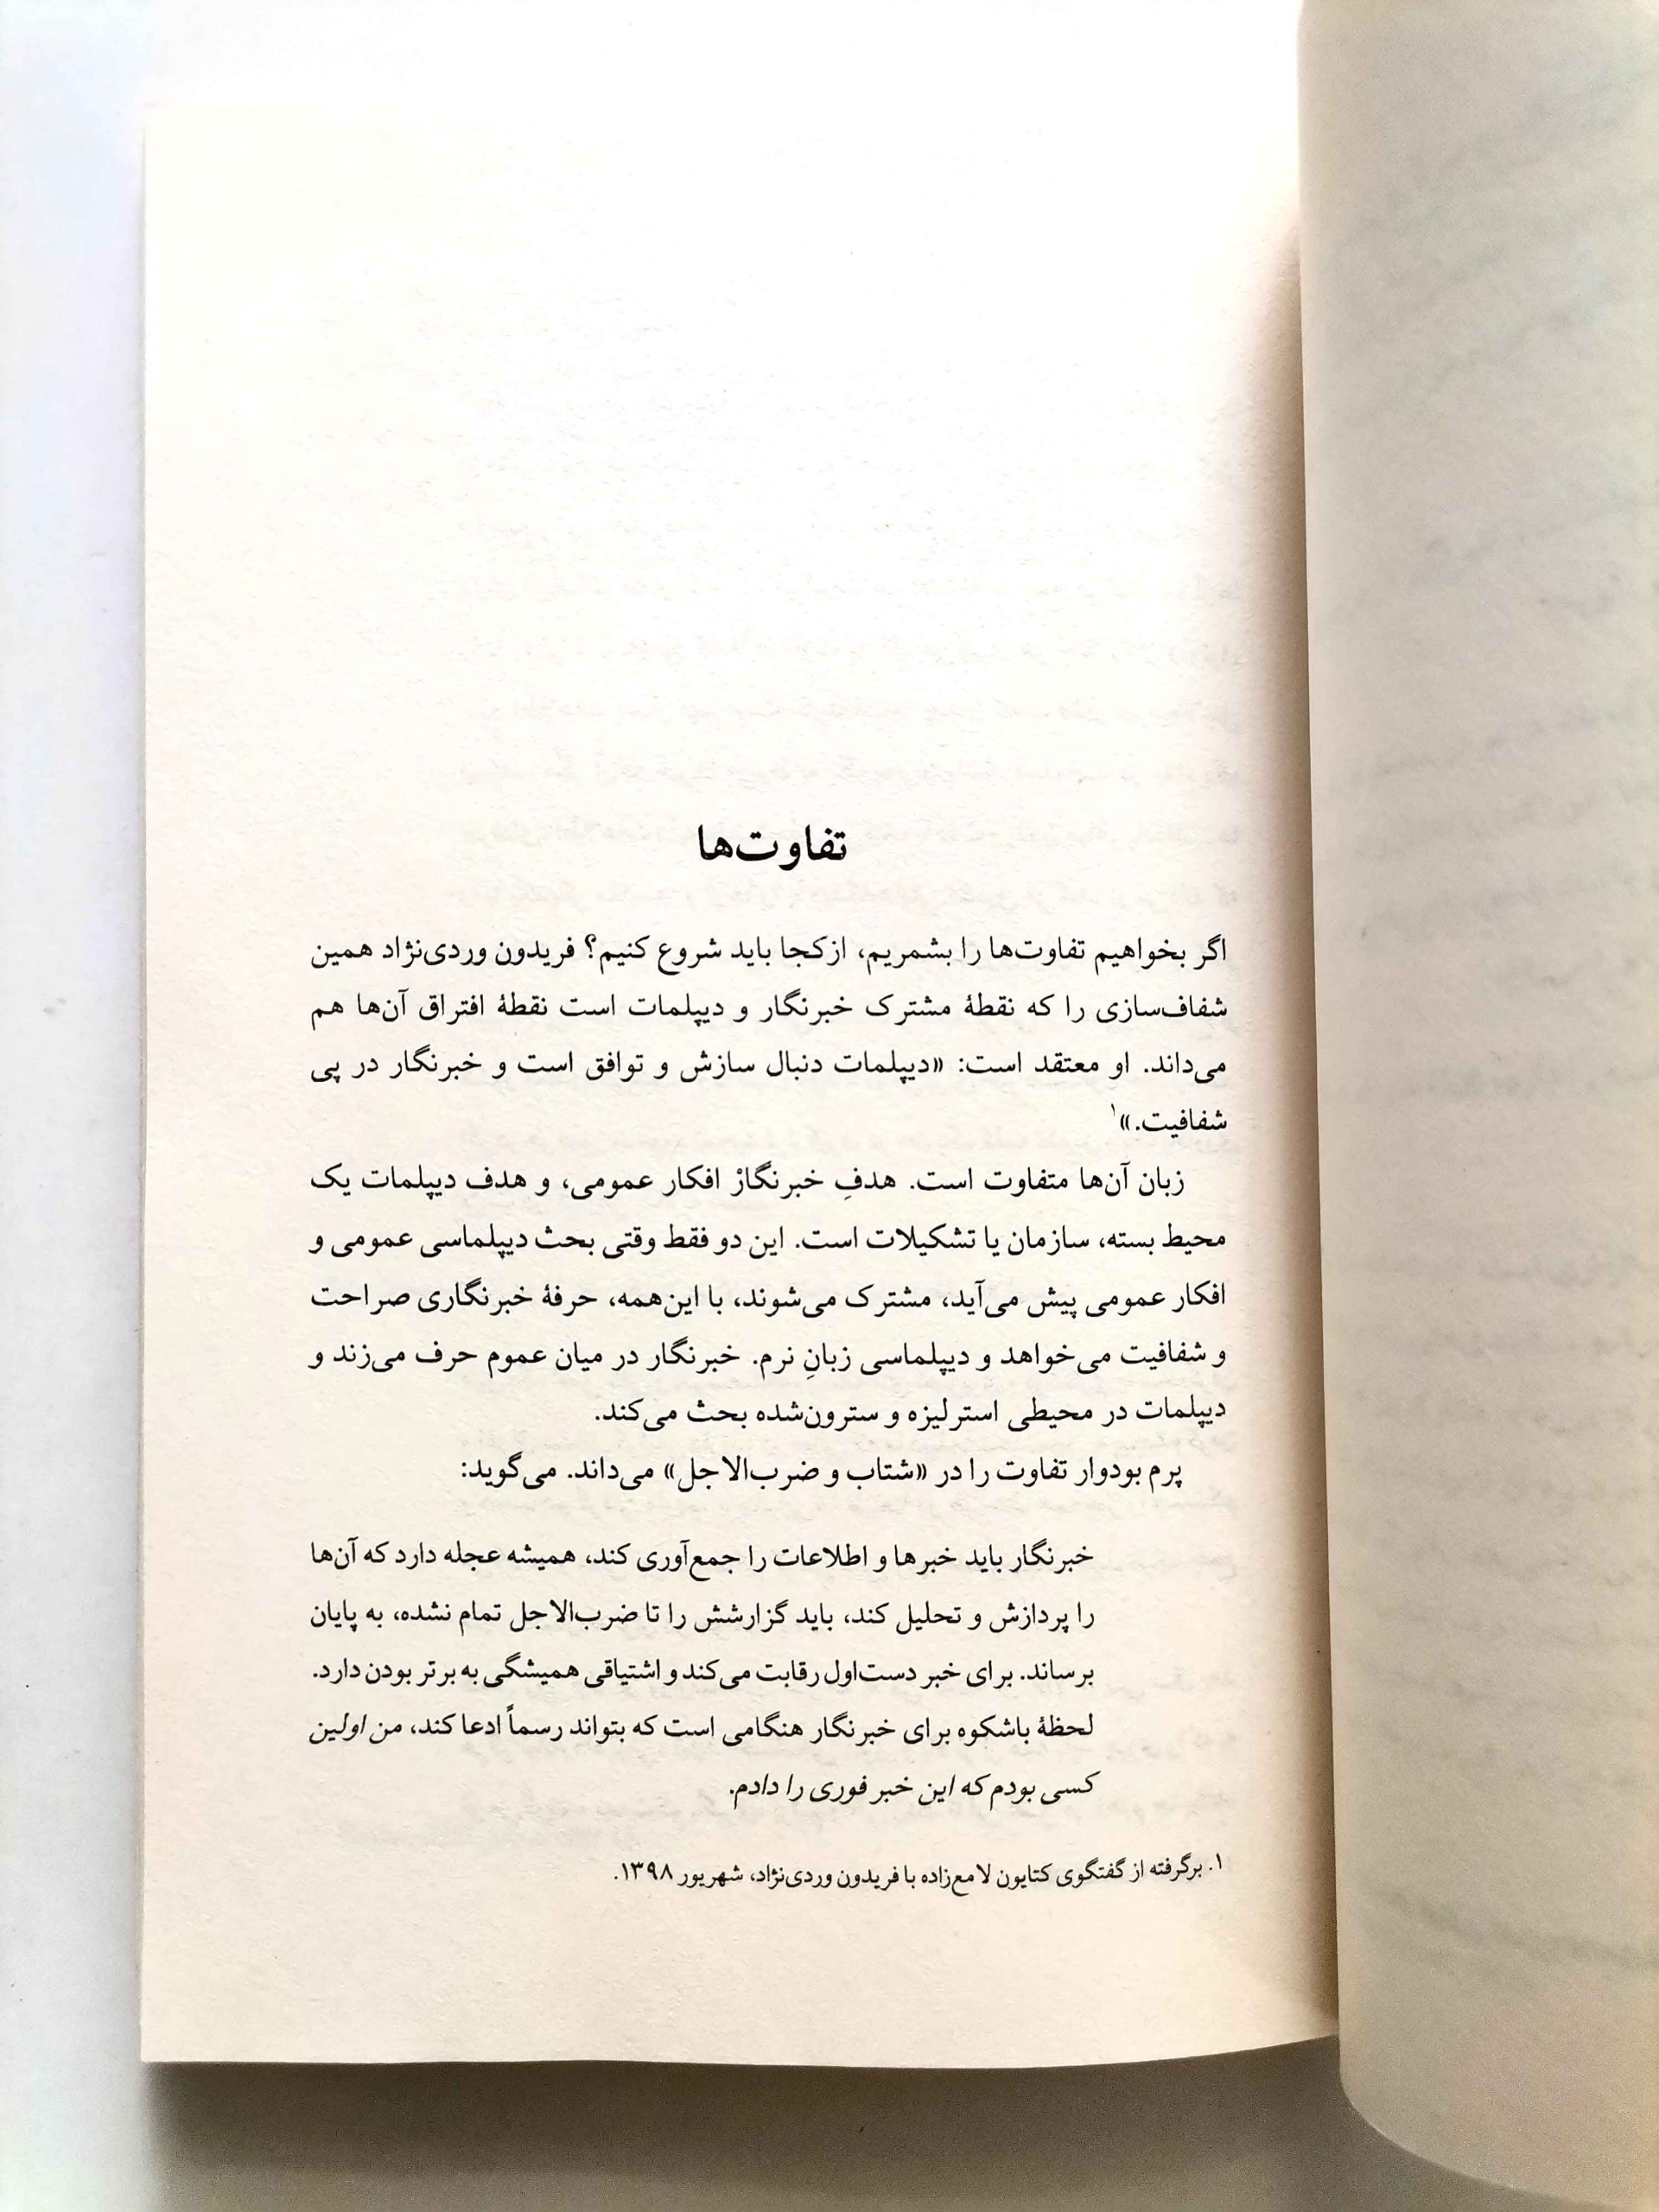 تفاوت‌ها
اگر بخواهیم تفاوت‌ها را بشمریم، ازکجا باید شروع کنیم؟ فریدون وردی‌نژاد همین
شفاف‌سازی را که نقطهٔ مشترک خبرنگار و دیپلمات است نقطهٔ افتراق آن‌ها هم
می‌داند. او معتقد است: «دیپلمات دنبال سازش و توافق است و خبرنگار در پی
شفافیت.»۱
زبان آن‌ها متفاوت است. هدفِ خبرنگارْ افکار عمومی، و هدف دیپلمات یک
محیط بسته، سازمان یا تشکیلات است. این دو فقط وقتی بحث دیپلماسی عمومی و
افکار عمومی پیش می‌آید، مشترک می‌شوند، با این‌همه، حرفهٔ خبرنگاری صراحت
و شفافیت می‌خواهد و دیپلماسی زبانِ نرم. خبرنگار در میان عموم حرف می‌زند و
دیپلمات در محیطی استرلیزه و سترون‌شده بحث می‌کند.
پرم بودوار تفاوت را در «شتاب و ضرب‌الاجل» می‌داند. می‌گوید:
خبرنگار باید خبرها و اطلاعات را جمع‌آوری کند، همیشه عجله دارد که آن‌ها
را پردازش و تحلیل کند، باید گزارشش را تا ضرب‌الاجل تمام نشده، به پایان
برساند. برای خبر دست‌اول رقابت می‌کند و اشتیاقی همیشگی به برتر بودن دارد.
لحظهٔ باشکوه برای خبرنگار هنگامی است که بتواند رسماً ادعا کند، من اولین
کسی بودم که این خبر فوری را دادم.
۱. برگرفته از گفتگوی کتایون لامع‌زاده با فریدون وردی‌نژاد، شهریور ۱۳۹۸.